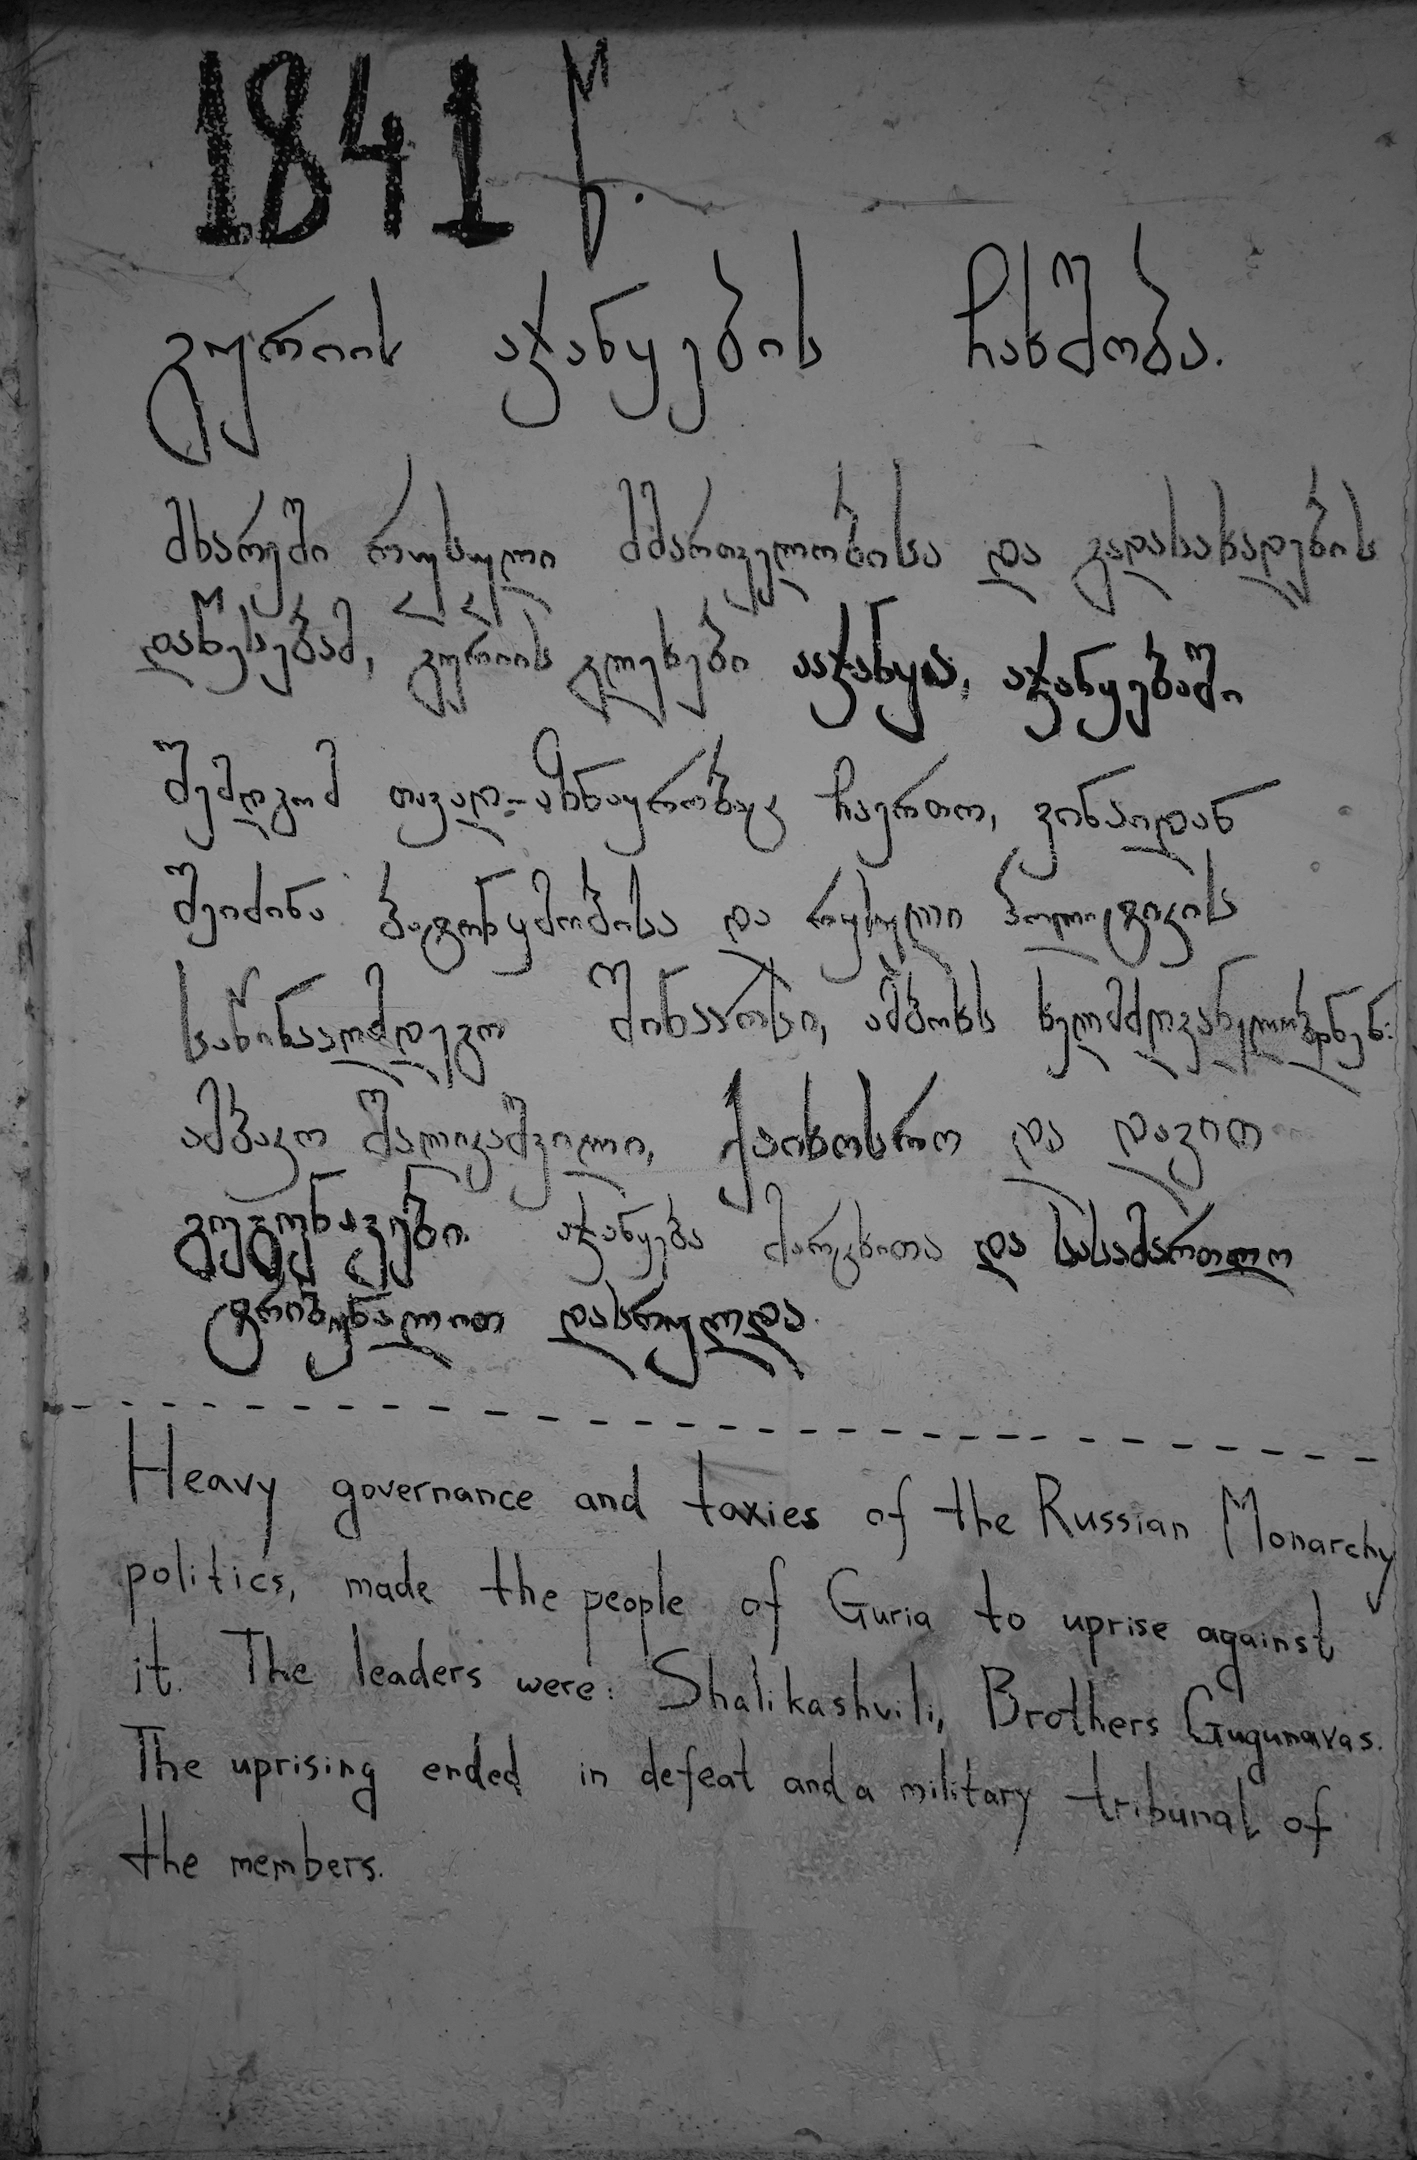 1841 წ.
გურიის აჯანყების ჩახშობა.
მხარეში რუსული მმართველობისა და გადასახადების
დაწესებამ, გურიის გლეხები ააჯანყა, აჯანყებაში
შემდგომ თავად-აზნაურობაც ჩაერთო, ვინაიდან
შეიძინა ბატონყმობისა და რუსული პოლიტიკის
საწინააღმდეგო შინაარსი, ამბოხს ხელმძღვანელობდნენ:
ამბაკო შალიკაშვილი, ქაიხოსრო და დავით
გუგუნავები. აჯანყება მარცხითა და სასამართლო
ტრიბუნალით დასრულდა.
Heavy governance and taxies of the Russian Monarchy
politics, made the people of Guria to uprise against
it. The leaders were: Shalikashvili, Brothers Gugunavas.
The uprising ended in defeat and a military tribunal of
the members.